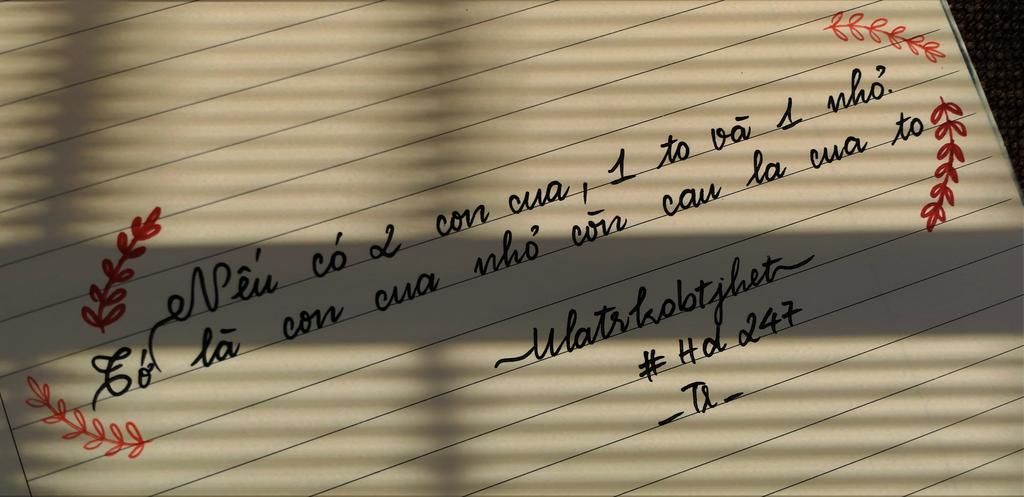 Nếu có 2 con cua, 1 to và 1 nhỏ.
Tớ là con cua nhỏ còn cau la cua to
~Ulatrkobtjhet~
# Hd 247